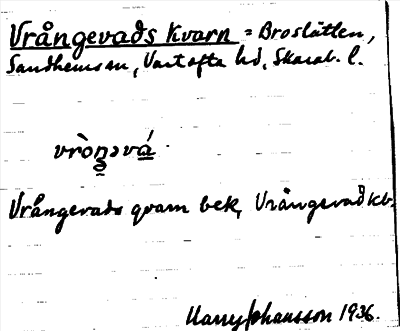 Vrångevads Kvarn = Broslätten,
Sandhems sn, Vartofta hd, Skarab. l.
vròŋəvá
Vrångevads qvarn bek, Vrångevad kb.
Harry Johansson 1936.